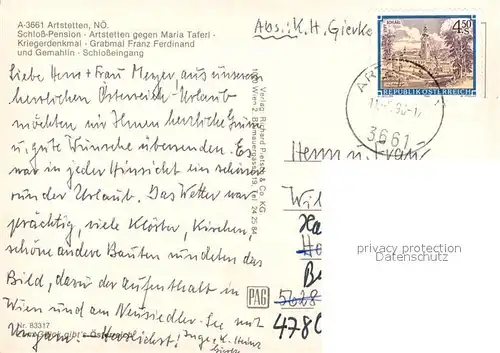 A-3661 Artstetten, NÖ.
Schloß-Pension - Artstetten gegen Maria Taferl -
Kriegerdenkmal - Grabmal Franz Ferdinand
und Gemahlin - Schloßeingang
Abs.: K. H. Gierke
4.50
REPUBLIK ÖSTERREICH
3661
Liebe Herr + Frau Meyer, aus unserem
herrlichen Österreich-Urlaub
möchten wir Ihnen herzliche Grüße
u. gute Wünsche übersenden. Es
war in jeder Hinsicht ein schöner
runder Urlaub. Das Wetter war
prächtig, viele Klöster, Kirchen,
schöne andere Bauten rundeten das
Bild, dazu der Aufenthalt in
Wien und am Neusiedler See mit
Ungarn. Herzlichst! Inge, K. Heinz
Gierke
Verlag Richard Pietsch & Co. KG
Nr. 83317
PAG
Herrn u. Frau
5628
4780
privacy protection
Datenschutz